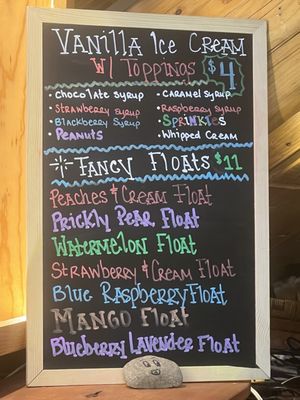 Vanilla Ice Cream
W/ Toppings $4
• Chocolate Syrup • Caramel Syrup
• Strawberry Syrup • Raspberry Syrup
• Blackberry Syrup • Sprinkles
• Peanuts • Whipped Cream
Fancy Floats $11
Peaches & Cream Float
Prickly Pear Float
Watermelon Float
Strawberry & Cream Float
Blue Raspberry Float
Mango Float
Blueberry Lavender Float